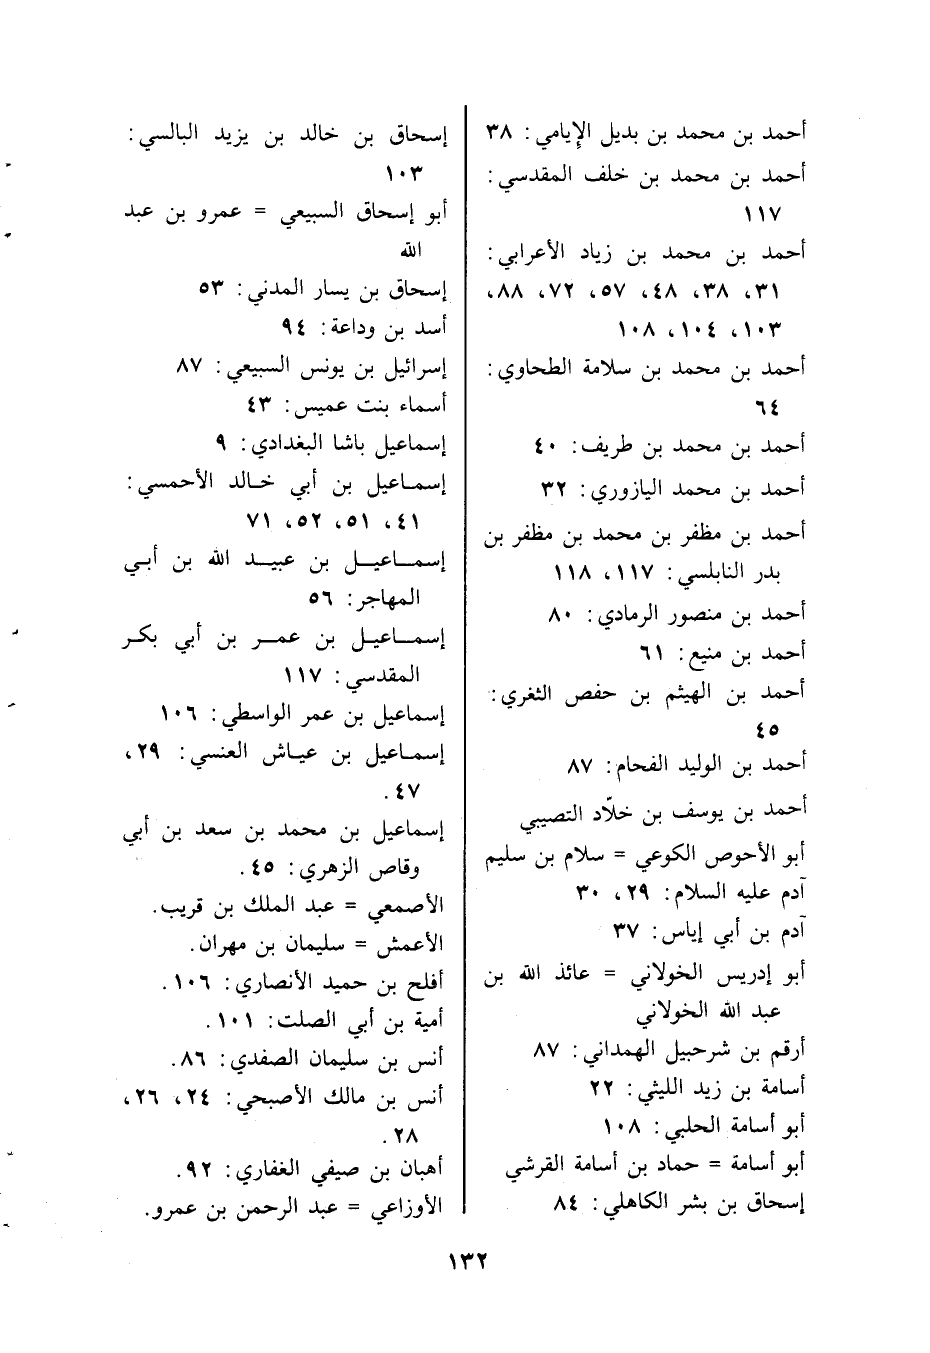 أحمد بن محمد بن بديل الإيامي: ٣٨
أحمد بن محمد بن خلف المقدسي:
١١٧
أحمد بن محمد بن زياد الأعرابي:
٣١، ٣٨، ٤٨، ٥٧، ٧٢، ٨٨،
١٠٣، ١٠٤، ١٠٨
أحمد بن محمد بن سلامة الطحاوي:
٦٤
أحمد بن محمد بن طريف: ٤٠
أحمد بن محمد اليازوري: ٣٢
أحمد بن مظفر بن محمد بن مظفر بن
بدر النابلسي: ١١٧، ١١٨
أحمد بن منصور الرمادي: ٨٠
أحمد بن منيع: ٦١
أحمد بن الهيثم بن حفص الثغري:
٤٥
أحمد بن الوليد الفحام: ٨٧
أحمد بن يوسف بن خلّاد التصيبي
أبو الأحوص الكوعي = سلام بن سليم
آدم عليه السلام: ٢٩، ٣٠
آدم بن أبي إياس: ٣٧
أبو إدريس الخولاني = عائذ الله بن
عبد الله الخولاني
أرقم بن شرحبيل الهمداني: ٨٧
أسامة بن زيد الليثي: ٢٢
أبو أسامة الحلبي: ١٠٨
أبو أسامة = حماد بن أسامة القرشي
إسحاق بن بشر الكاهلي: ٨٤
إسحاق بن خالد بن يزيد البالسي:
١٠٣
أبو إسحاق السبيعي = عمرو بن عبد
الله
إسحاق بن يسار المدني: ٥٣
أسد بن وداعة: ٩٤
إسرائيل بن يونس السبيعي: ٨٧
أسماء بنت عميس: ٤٣
إسماعيل باشا البغدادي: ٩
إسماعيل بن أبي خالد الأحمسي:
٤١، ٥١، ٥٢، ٧١
إسماعيل بن عبيد الله بن أبي
المهاجر: ٥٦
إسماعيل بن عمر بن أبي بكر
المقدسي: ١١٧
إسماعيل بن عمر الواسطي: ١٠٦
إسماعيل بن عياش العنسي: ٢٩،
٤٧.
إسماعيل بن محمد بن سعد بن أبي
وقاص الزهري: ٤٥.
الأصمعي = عبد الملك بن قريب.
الأعمش = سليمان بن مهران.
أفلح بن حميد الأنصاري: ١٠٦.
أمية بن أبي الصلت: ١٠١.
أنس بن سليمان الصفدي: ٨٦.
أنس بن مالك الأصبحي: ٢٤، ٢٦،
٢٨.
أهبان بن صيفي الغفاري: ٩٢.
الأوزاعي = عبد الرحمن بن عمرو.
١٣٢